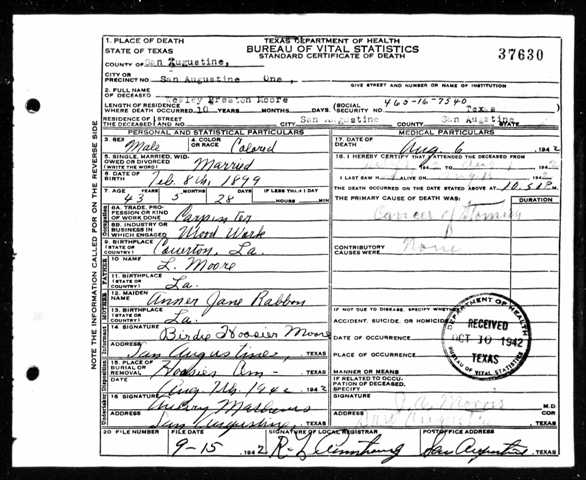 1. PLACE OF DEATH
STATE OF TEXAS
TEXAS DEPARTMENT OF HEALTH
BUREAU OF VITAL STATISTICS
STANDARD CERTIFICATE OF DEATH
37630
COUNTY OF San Augustine,
CITY OR PRECINCT NO. San Augustine One,
GIVE STREET AND NUMBER OR NAME OF INSTITUTION
2. FULL NAME OF DECEASED Wesley Preston Moore
LENGTH OF RESIDENCE WHERE DEATH OCCURRED 10 YEARS MONTHS DAYS (SOCIAL SECURITY NO. 465-16-7540
RESIDENCE OF THE DECEASED STREET AND NO. CITY San Augustine COUNTY San Augustine STATE Texas
PERSONAL AND STATISTICAL PARTICULARS
3. SEX Male 4. COLOR OR RACE Colored
5. SINGLE, MARRIED, WIDOWED OR DIVORCED (WRITE THE WORD) Married
6. DATE OF BIRTH Feb. 8th, 1899
7. AGE YEARS MONTHS DAYS IF LESS THAN 1 DAY
43 5 28 HOURS MIN
8A. TRADE, PROFESSION OR KIND OF WORK DONE Carpenter
8B. INDUSTRY OR BUSINESS IN WHICH ENGAGED Wood Work
9. BIRTHPLACE (STATE OR COUNTRY) La.
10 NAME L. Moore
11. BIRTHPLACE (STATE OR COUNTRY) La.
12. MAIDEN NAME Jane
13. BIRTHPLACE (STATE OR COUNTRY) La.
14 SIGNATURE Birdie Hoosier Moore
ADDRESS San Augustine, TEXAS
15. PLACE OF BURIAL OR REMOVAL TEXAS
DATE Aug 1942
16 SIGNATURE
ADDRESS San Augustine, TEXAS
MEDICAL PARTICULARS
17. DATE OF DEATH Aug. 6 1942
18. I HEREBY CERTIFY THAT I ATTENDED THE DECEASED FROM
I LAST SAW H ALIVE
THE DEATH OCCURRED ON THE DATE STATED ABOVE AT 10:
THE PRIMARY CAUSE OF DEATH WAS: DURATION
Cancer of Stomach
CONTRIBUTORY CAUSES WERE: None
IF NOT DUE TO DISEASE, SPECIFY WHETHER:
ACCIDENT, SUICIDE, OR HOMICIDE
DATE OF OCCURRENCE
PLACE OF OCCURRENCE
MANNER OR MEANS
IF RELATED TO OCCUPATION OF DECEASED, SPECIFY
SIGNATURE M.D.
ADDRESS TEXAS
DEPARTMENT OF HEALTH
RECEIVED
OCT 10 1942
TEXAS
BUREAU OF VITAL STATISTICS
20 FILE NUMBER FILE DATE SIGNATURE OF LOCAL REGISTRAR POSTOFFICE ADDRESS
9-15 1942 San Augustine TEXAS
NOTE THE INFORMATION CALLED FOR ON THE REVERSE SIDE
OCCUPATION
FATHER
MOTHER